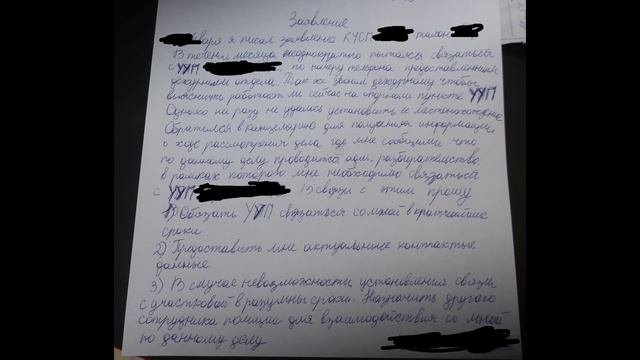 Заявление
варя я писал заявление КУСП талон
В течении месяца неоднократно пытался связаться
с УУП по номеру телефона предоставленным
дежурным отдела. Так же звонил дежурному чтобы
выяснить работает ли сейчас на опорном пункте УУП
Однако ни разу не удалось установить ее местонахождение
Обратился в канцелярию для получения информации
о ходе рассмотрения дела где мне сообщили что
по данному делу проводится адм. разбирательство
в рамках которого мне необходимо связаться
с УУП В связи с этим прошу
1) Обязать УУП связаться со мной в кратчайшие
сроки
2) Предоставить мне актуальные контактые
данные
3) В случае невозможности установления связи
с участковой в разумны сроки. Назначить другого
сотрудника полиции для взаимодействия со мной
по данному делу